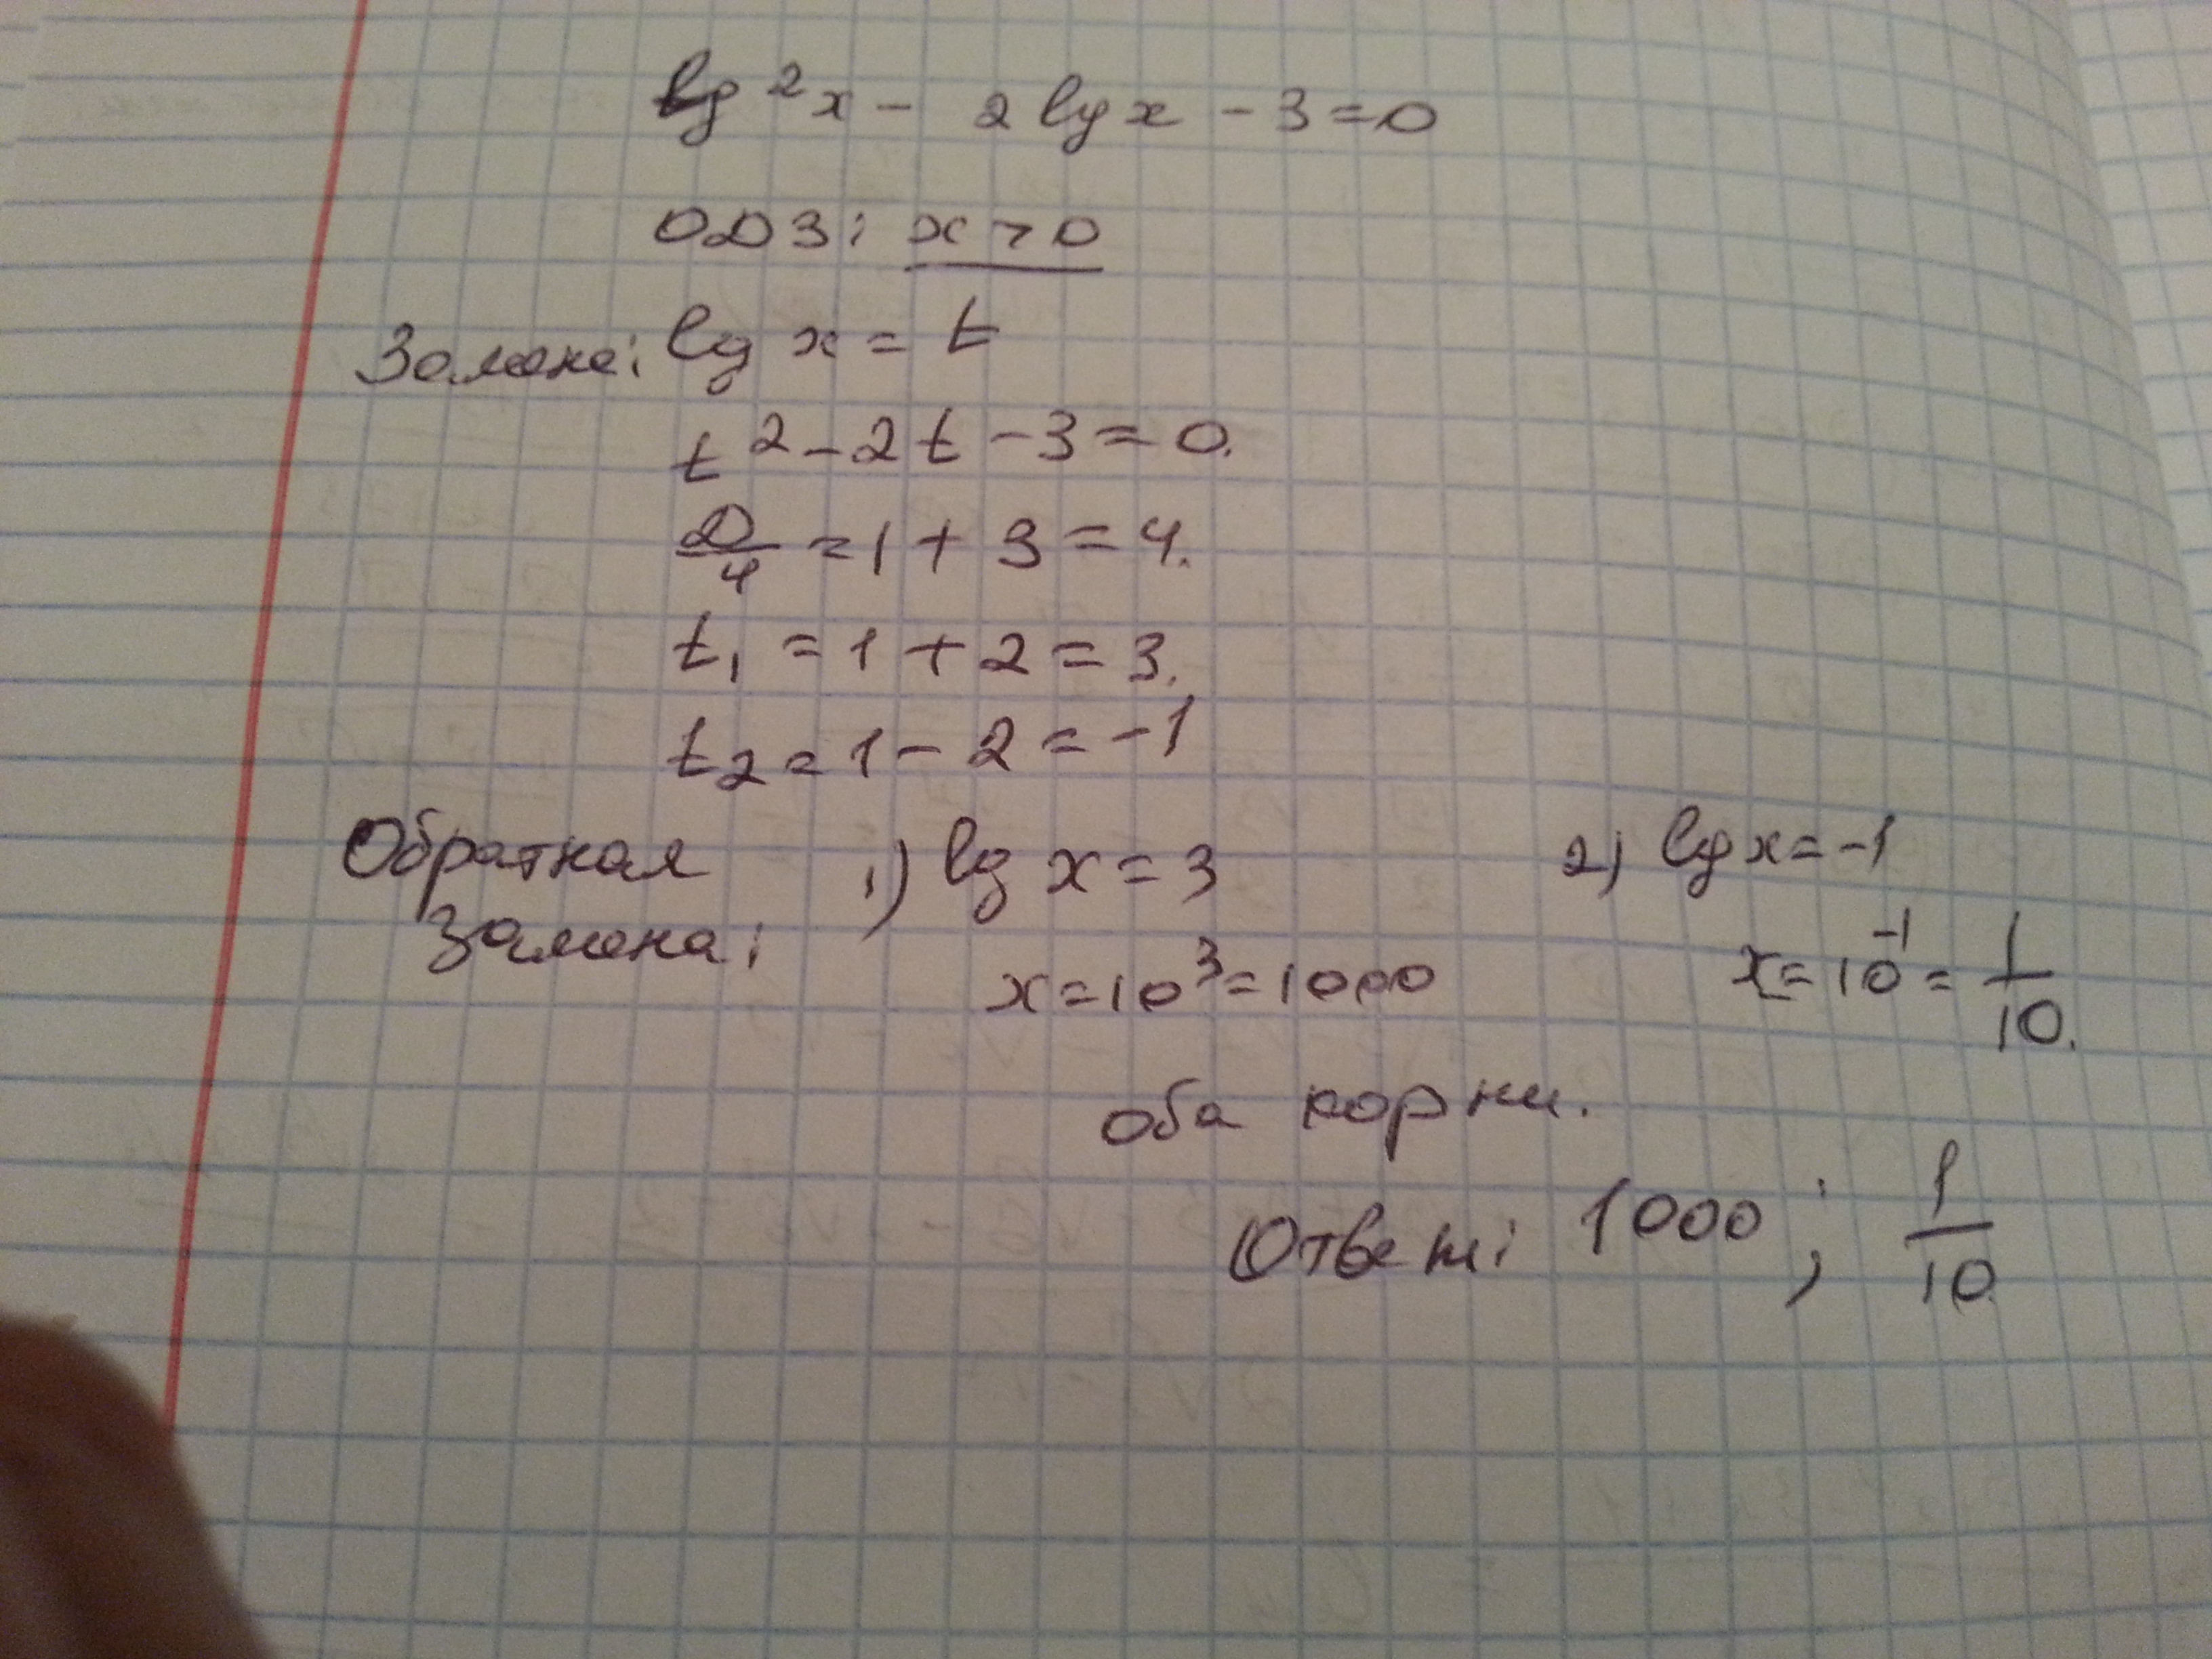 lg²x - 2 lg x - 3 = 0
ОДЗ: x > 0
Замена: lg x = t
t² - 2t - 3 = 0.
D/4 = 1 + 3 = 4.
t₁ = 1 + 2 = 3.
t₂ = 1 - 2 = -1
Обратная замена: 1) lg x = 3
x = 10³ = 1000
2) lg x = -1
x = 10⁻¹ = 1/10.
оба корни.
Ответ: 1000 ; 1/10